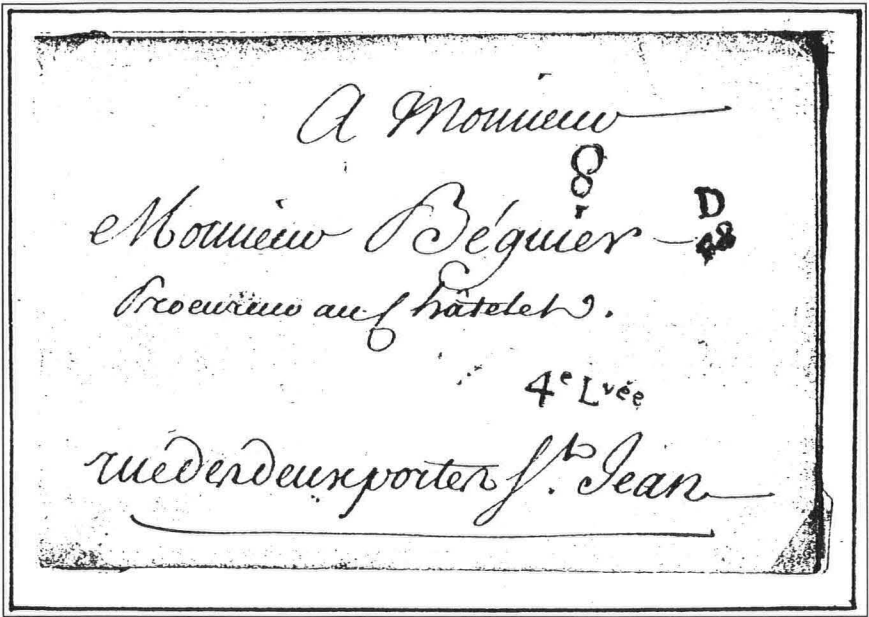 A Monsieur
8
r
D
Monsieur Béguier
28
Procureur au Châtelet.
4e Lvée
rue des deux portes St. Jean